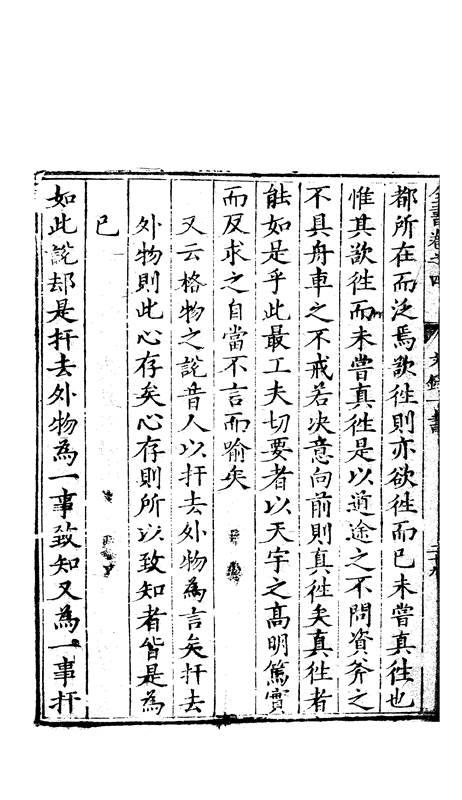 全書卷之四　文錄一　書
都所在而泛焉欲徃則亦欲徃而已未嘗真徃也
惟其欲徃而未嘗真徃是以道途之不問資斧之
不具舟車之不戒若决意向前則真徃矣真徃者
能如是乎此最工夫切要者以天宇之高明篤實
而反求之自當不言而喻矣
又云格物之說昔人以扞去外物為言矣扞去
外物則此心存矣心存則所以致知者皆是為
已
如此說却是扞去外物為一事致知又為一事扞